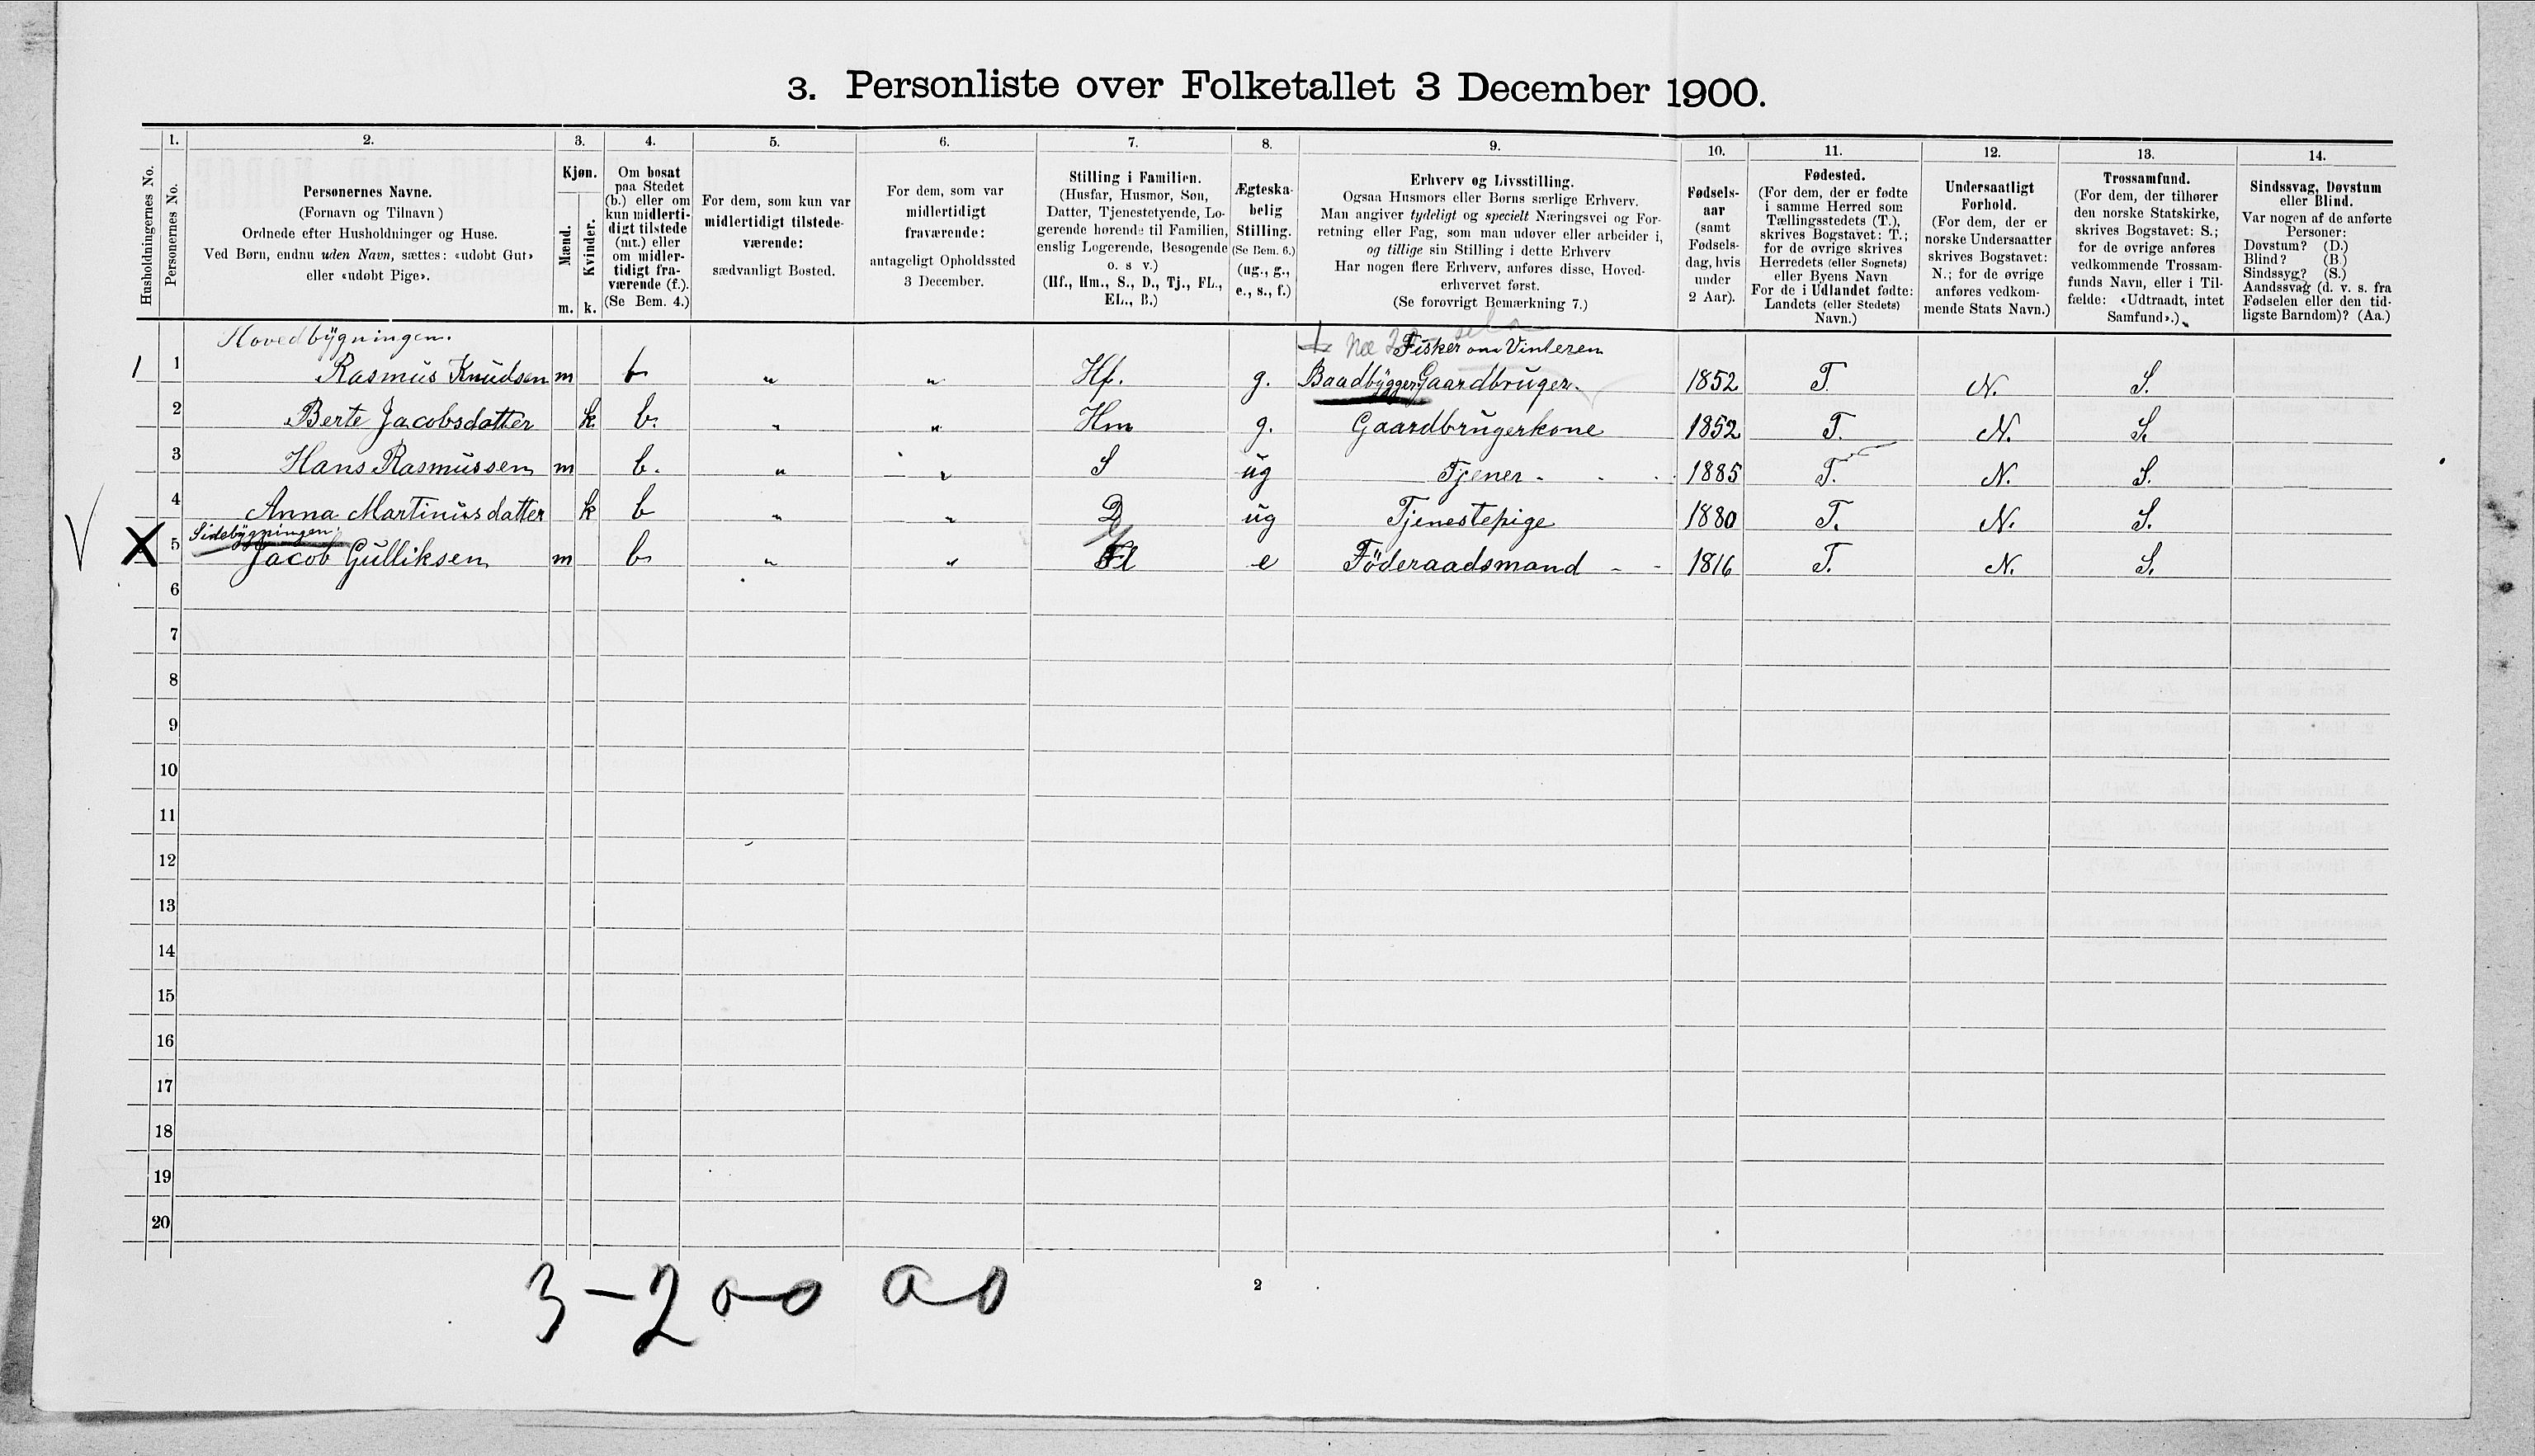 3. Personliste over Folketallet 3 December 1900.
1. 2. 3. 4. 5. 6. 7. 8. 9. 10. 11. 12. 13. 14.
Husholdningernes No.
Personernes No.
Personernes Navne.
(Fornavn og Tilnavn)
Ordnede efter Husholdninger og Huse.
Ved Børn, endnu uden Navn, sættes: «udøbt Gut»
eller «udøbt Pige».
Kjøn.
Mænd.
Kvinder.
m. k.
Om bosat
paa Stedet
(b.) eller om
kun midlerti-
digt tilstede
(mt.) eller
om midler-
tidigt fra-
værende (f.).
(Se Bem. 4.)
For dem, som kun var
midlertidigt tilstede-
værende:
sædvanligt Bosted.
For dem, som var
midlertidigt
fraværende:
antageligt Opholdssted
3 December.
Stilling i Familien.
(Husfar, Husmor, Søn,
Datter, Tjenestetyende, Lo-
gerende hørende til Familien,
enslig Logerende, Besøgende
o. s v.)
(Hf., Hm., S., D., Tj., FL.,
EL., B.)
Ægteska-
belig
Stilling.
(Se Bem. 6.)
(ug., g.,
e., s., f.)
Erhverv og Livsstilling.
Ogsaa Husmors eller Børns særlige Erhverv.
Man angiver tydeligt og specielt Næringsvei og For-
retning eller Fag, som man udøver eller arbeider i,
og tillige sin Stilling i dette Erhverv
Har nogen flere Erhverv, anføres disse, Hoved-
erhvervet først.
(Se forøvrigt Bemærkning 7.)
Fødsels-
aar
(samt
Fødsels-
dag, hvis
under
2 Aar).
Fødested.
(For dem, der er fødte
i samme Herred som
Tællingsstedets (T.),
skrives Bogstavet: T.;
for de øvrige skrives
Herredets (eller Sognets)
eller Byens Navn
For de i Udlandet fødte:
Landets (eller Stedets)
Navn.)
Undersaatligt
Forhold.
(For dem, der er
norske Undersaatter
skrives Bogstavet:
N.; for de øvrige
anføres vedkom-
mende Stats Navn.)
Trossamfund.
(For dem, der tilhører
den norske Statskirke,
skrives Bogstavet: S.;
for de øvrige anføres
vedkommende Trossam-
funds Navn, eller i Til-
fælde: «Udtraadt, intet
Samfund».)
Sindssvag, Døvstum
eller Blind.
Var nogen af de anførte
Personer:
Døvstum? (D.)
Blind? (B.)
Sindssyg? (S.)
Aandssvag (d. v. s. fra
Fødselen eller den tid-
ligste Barndom)? (Aa.)
Hovedbygningen.
Fisker om Vinteren
1 1 Rasmus Knudsen m b " " Hf. g. Baadbygger Gaardbruger. 1852 T. N. S.
2 Berte Jacobsdatter k b. " " Hm g. Gaardbrugerkone 1852 T. N. S.
3 Hans Rasmussen m b. " " S ug Tjener - 1885 T. N. S.
4 Anna Martinusdatter k b " " D ug Tjenestepige 1880 T. N. S.
Sidebygningen.
X 5 Jacob Gulliksen m b " " Fl e Föderaadsmand - - 1816 T. N. S.
6
7
8
9
10
11
12
13
14
15
16
17
18
19
20
3-2 0-0 a0
2